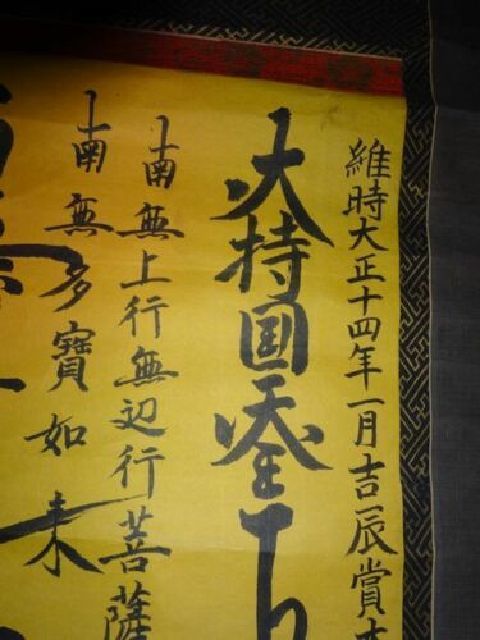 維時大正十四年一月吉辰賞
大持国天王
南無上行無辺行菩薩
南無多寶如来